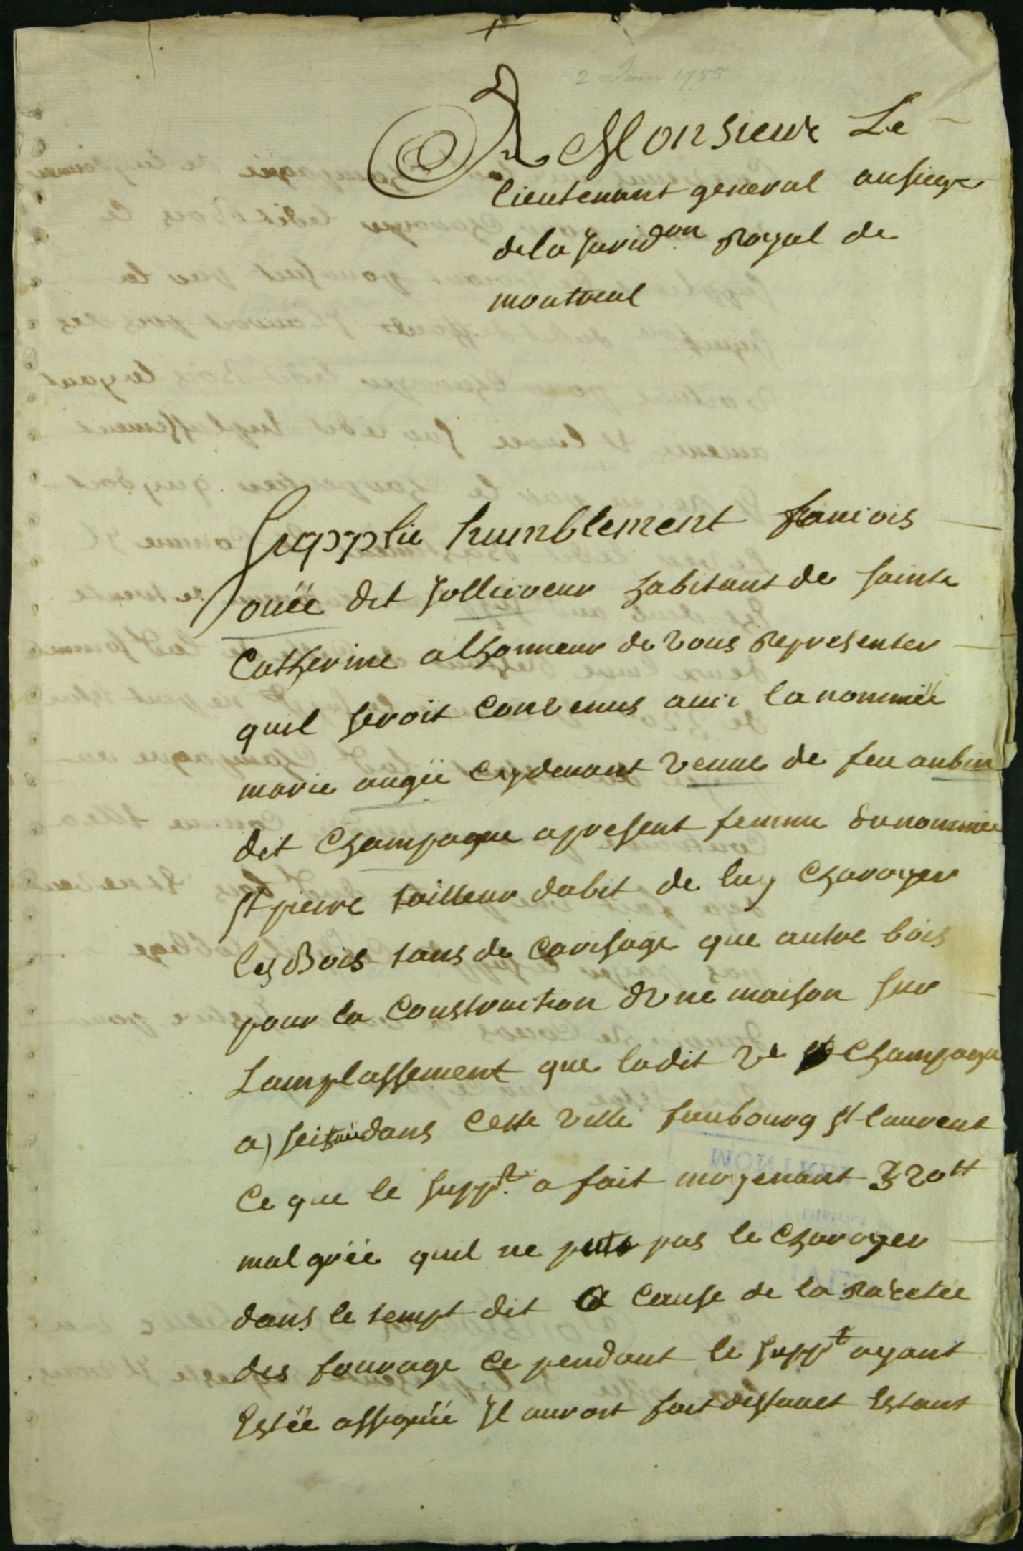 2 Juin 1755
A Monsieur Le
lieutenant general au siege
de la Jurid.on Royal de
montreal
Supplie humblement francois
ouëe dit Jollicoeur habitant de sainte
Catherine a lhonneur de vous representer
quil seroit convenus avec la nommeé
marie augé cydevant veuve de feu aubin
dit Champagne apresent femme du nommeé
st pierre tailleur dabit de luy charoyer
les Bois tans de carisage que autre bois
pour la construction dune maison sur
Lamplassement que ladit ve Champagne
a scituée dans cette ville faubourg st laurent
Ce que le supp.t a fait moyenant 320 tt
mal gréé quil ne pas le charoyer
dans le tempt dit a cause de la raretée
des fourage ce pendant le suppt ayant
Estéé assignéé Jl auroit fait deffaut Estant